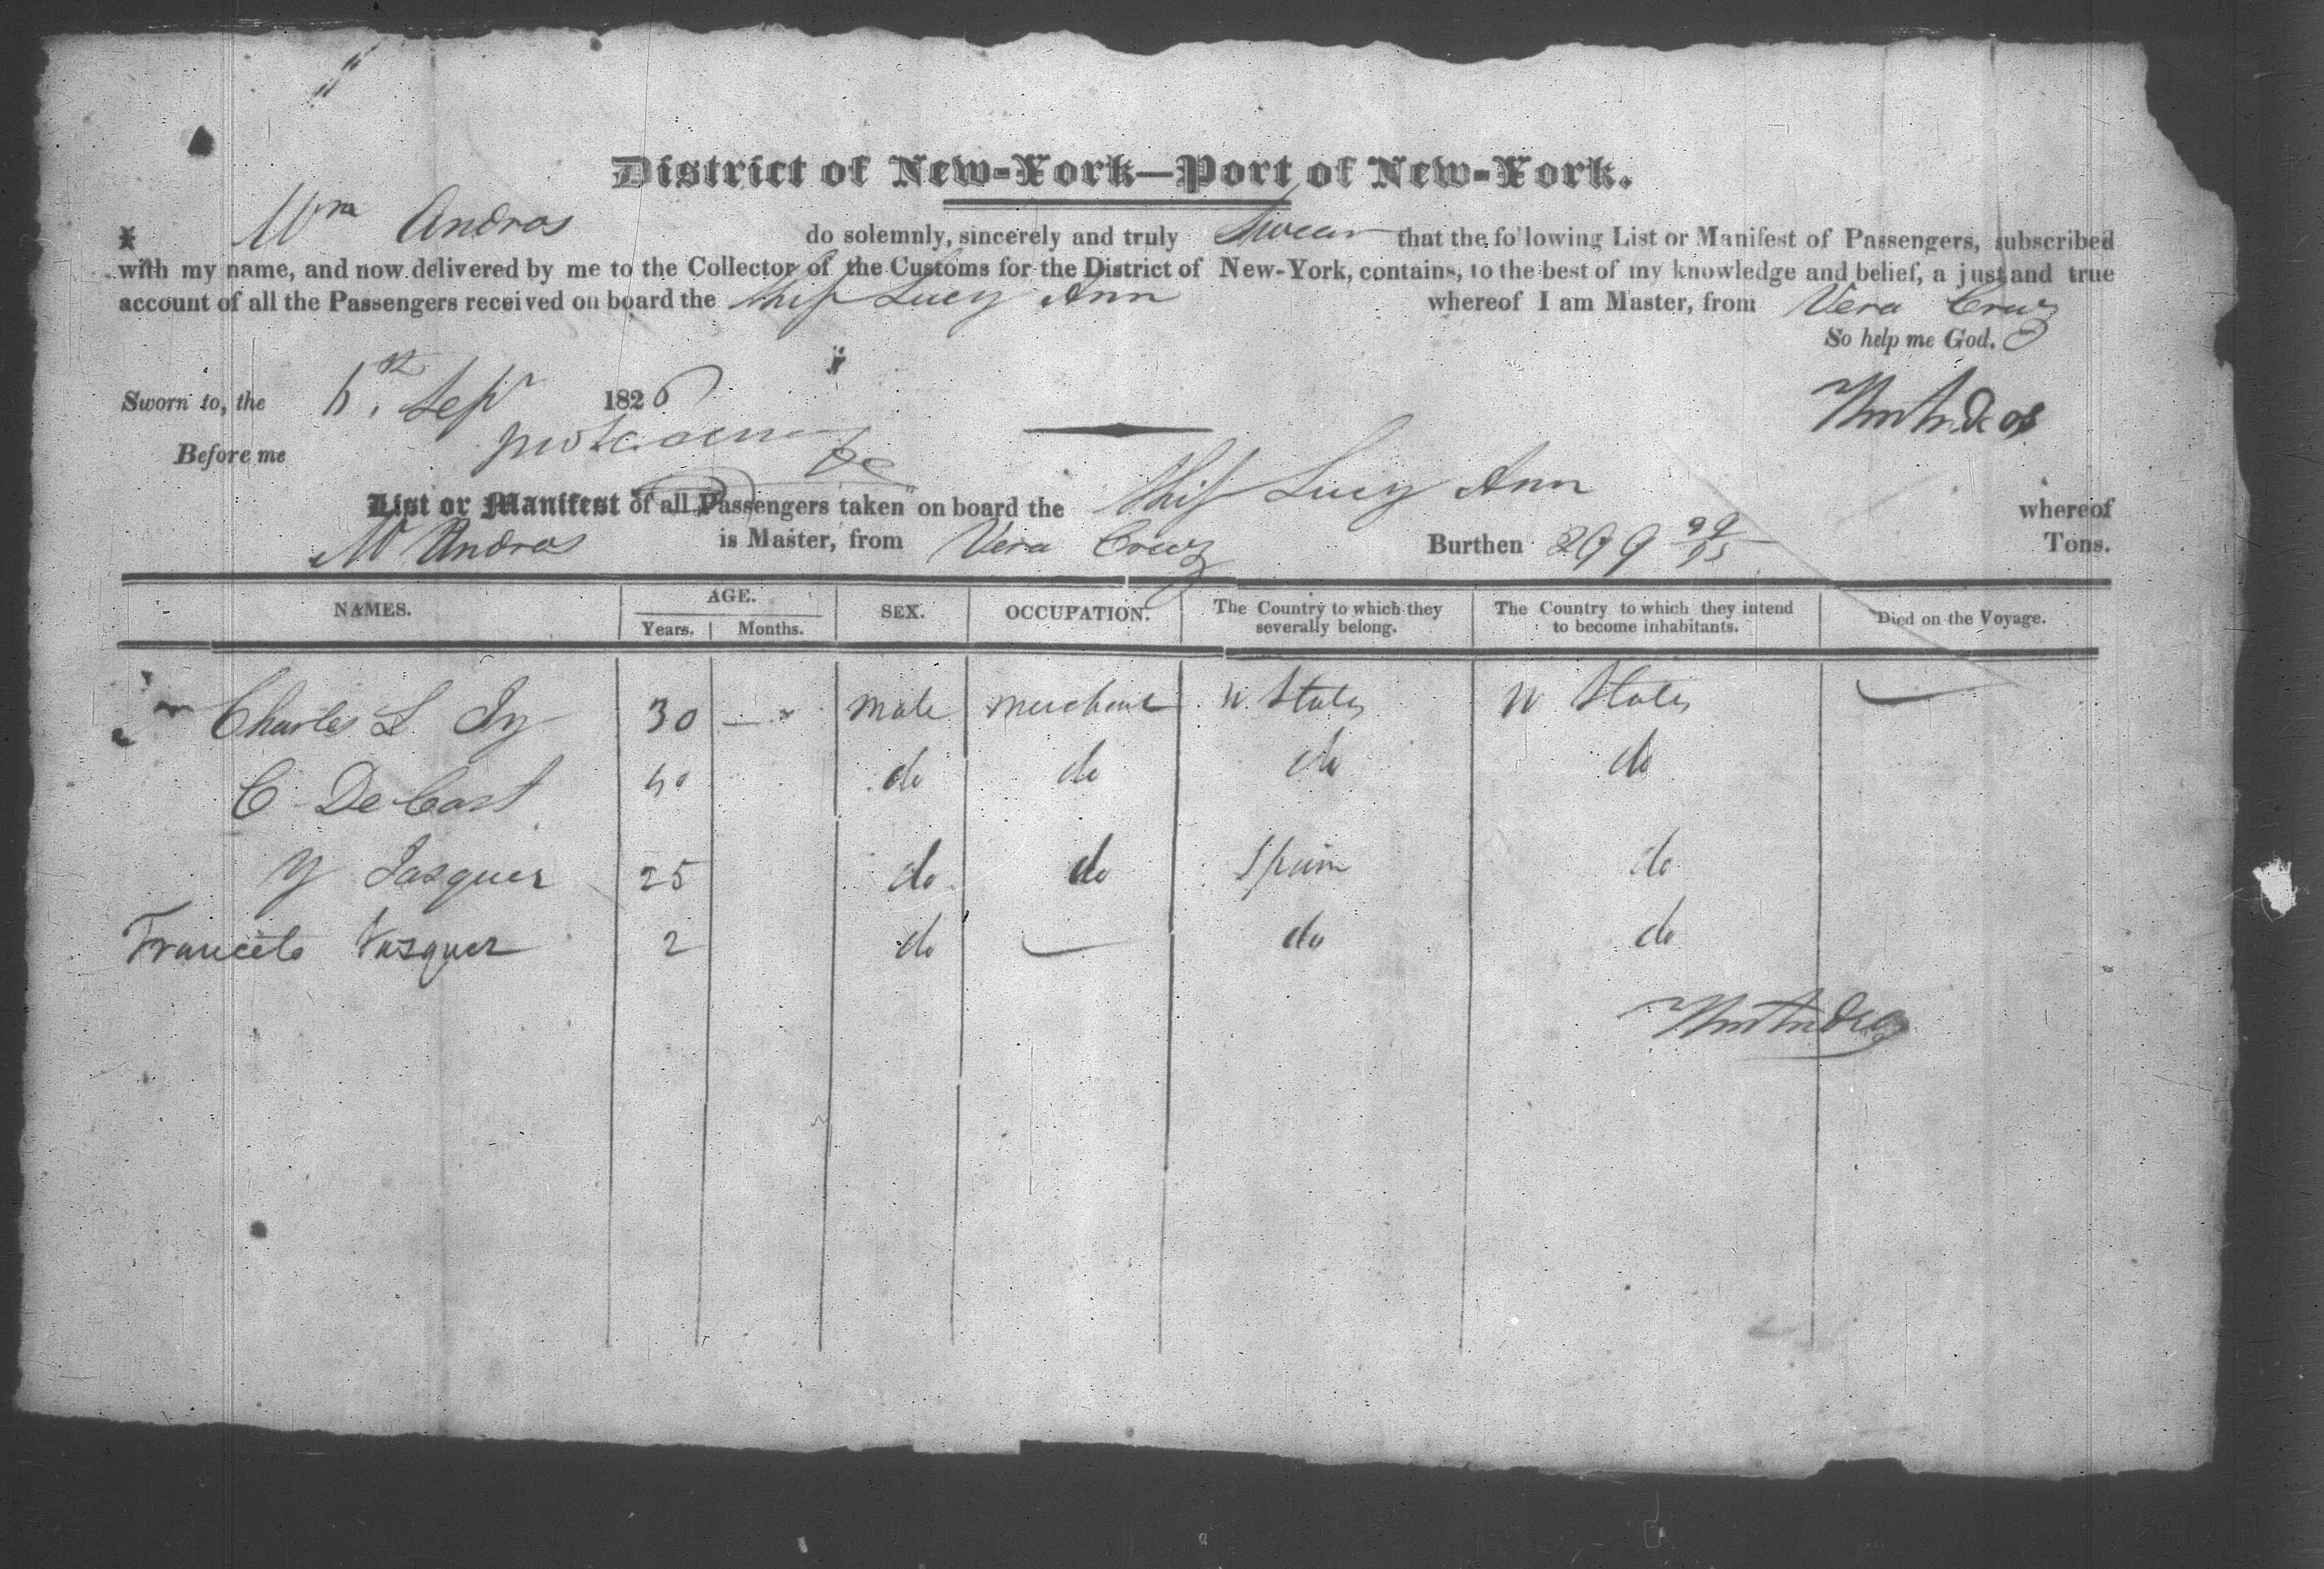 District of New-York—Port of New-York.
I Wm Andros do solemnly, sincerely and truly Swear that the following List or Manifest of Passengers, subscribed
with my name, and now delivered by me to the Collector of the Customs for the District of New-York, contains, to the best of my knowledge and belief, a just and true
account of all the Passengers received on board the Ship Lucy Ann whereof I am Master, from Vera Cruz
So help me God.
Sworn to, the Sepr 1826 Wm Andros
Before me
List or Manifest of all Passengers taken on board the Ship Lucy Ann whereof
W Andros is Master, from Vera Cruz Burthen 299 Tons.
NAMES. AGE. SEX. OCCUPATION. The Country to which they severally belong. The Country to which they intend to become inhabitants. Died on the Voyage.
Years. Months.
Charles L. 30 — male merchant U States U States
C De Cast do do do do
Y 25 do do Spain do
Vasquer 2 do — do do
Wm Andros